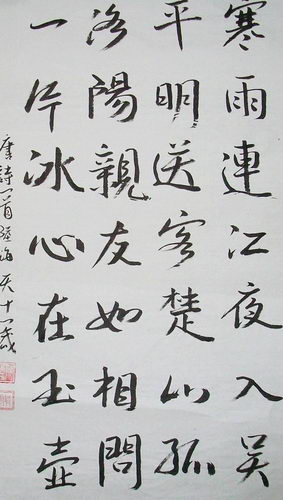 寒雨連江夜入吳
平明送客楚山孤
洛陽親友如相問
一片冰心在玉壺
唐詩一首
十一歲